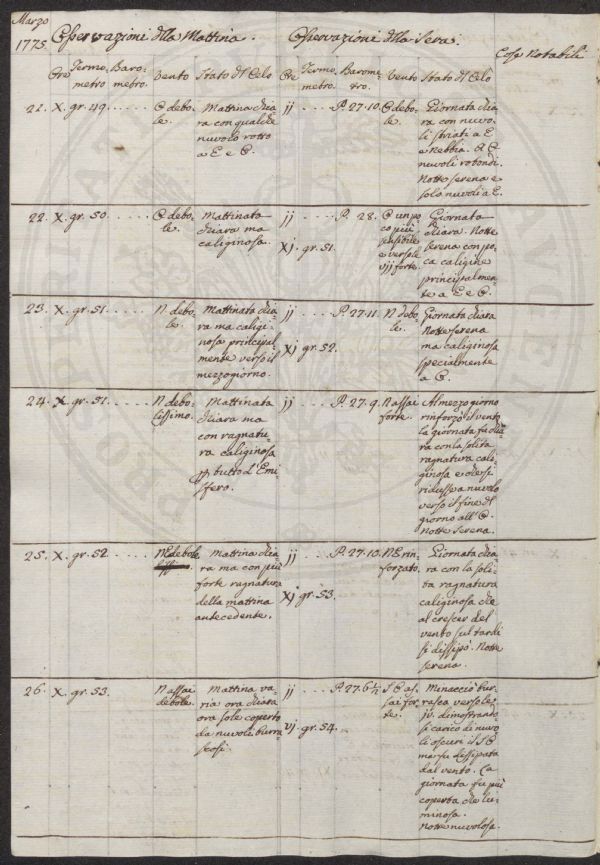 Marzo
1775. Osservazioni dlla Mattina. Osservazioni dlla Sera. Cose Notabili
Ore Termometro. Barometro. Vento Stato dl Cielo Ore Termometro. Barometro. Vento Stato dl Cielo
21. X. gr. 49. . . . . . debole. Mattina chiara con qualche nuvolo rotto a E e
jj . . . . P. 27.10. debole. Giornata chiara con nuvoli striati a E e nebbia. nuvoli rotondi. Notte serena e solo nuvoli a E.
22. X. gr. 50. . . . . . debole. Mattinata chiara ma caliginosa.
jj . . . . P. 28. un poco più sensibile e verso le vjj forte. Giornata chiara. Notte serena con poca caligine principalmente a E e
Xj. gr. 51.
23. X. gr. 51. . . . . . N. debole. Mattinata chiara ma caliginosa principalmente verso il mezzogiorno.
jj . . . . P. 27.11. N. debole. Giornata chiara Notte serena ma caliginosa specialmente a
Xj gr. 52.
24. X. gr. 51. . . . . . N. debolissimo. Mattinata chiara ma con ragnatura caliginosa tutto l'Emisfero.
jj . . . . P. 27.9. N assai forte. Al mezzo giorno rinforzò il vento la giornata fu chiara con la solita ragnatura caliginosa e ridusse a nuvolo verso il fine dl giorno all' Notte serena.
25. X. gr. 52 . . . . . NE debole Mattina chiara ma con più forte ragnatura della mattina antecedente.
jj . . . . P. 27.10. NE rinforzato. Giornata chiara con la solita ragnatura caliginosa che al crescer del vento sul tardi si dissipò. Notte serena.
Xj gr. 53.
26. X. gr. 53. N assai debole. Mattina varia ora chiara ora sole coperto da nuvole burrascosi.
jj . . . P. 27.6½. assai forte. Minacciò burrasca verso le jv. dimostrandosi carico di nuvoli oscuri il ma fu dissipata dal vento. La giornata fu più coperta che luminosa. Notte nuvolosa.
vj. gr. 54.